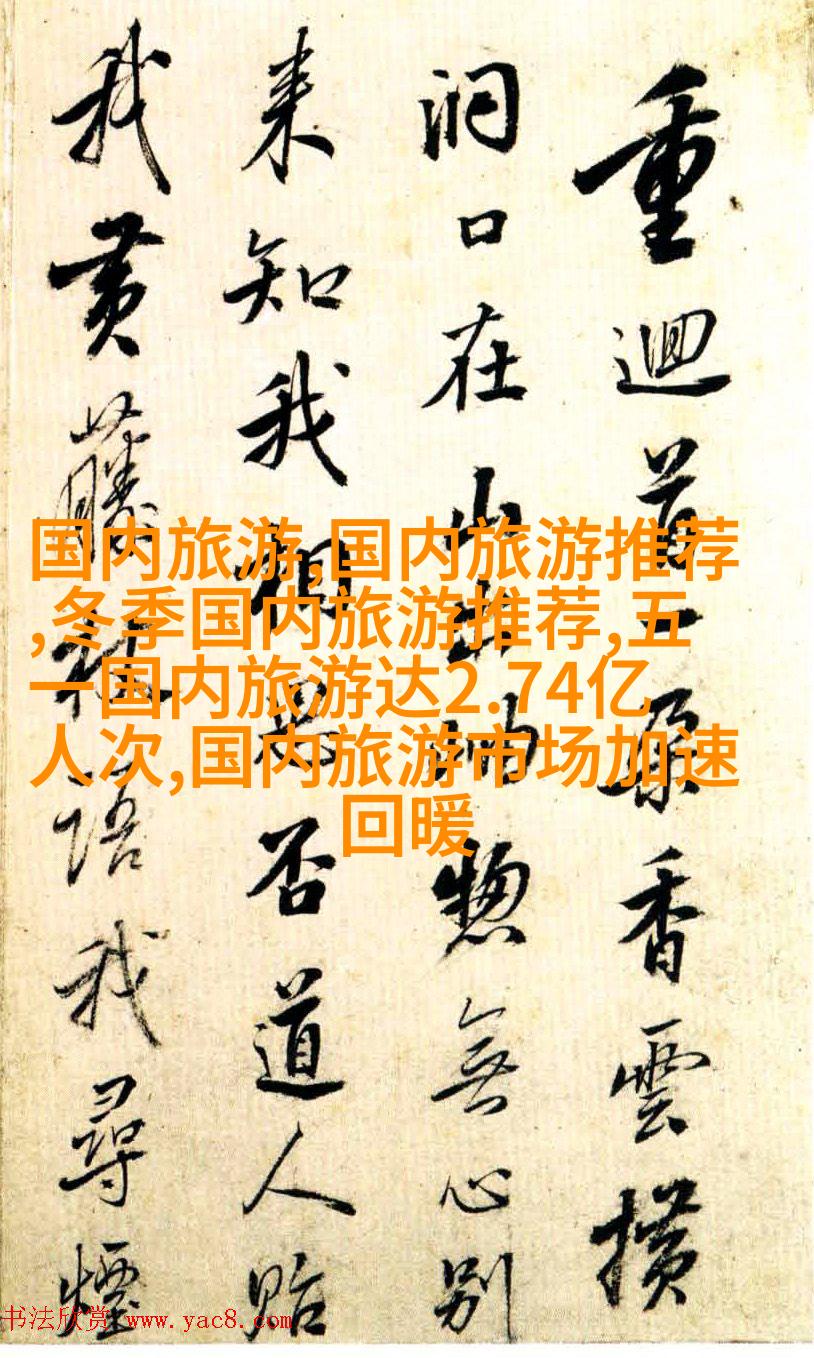 重迴首一原香雲撗
洞口在山出岫惣無心别
来知我相否道人贻
我黄藤語我尋煙
国内旅游,国内旅游推荐
,冬季国内旅游推荐,五
一国内旅游达2.74亿
人次,国内旅游市场加速
回暖
书法欣赏 www.yac8.com